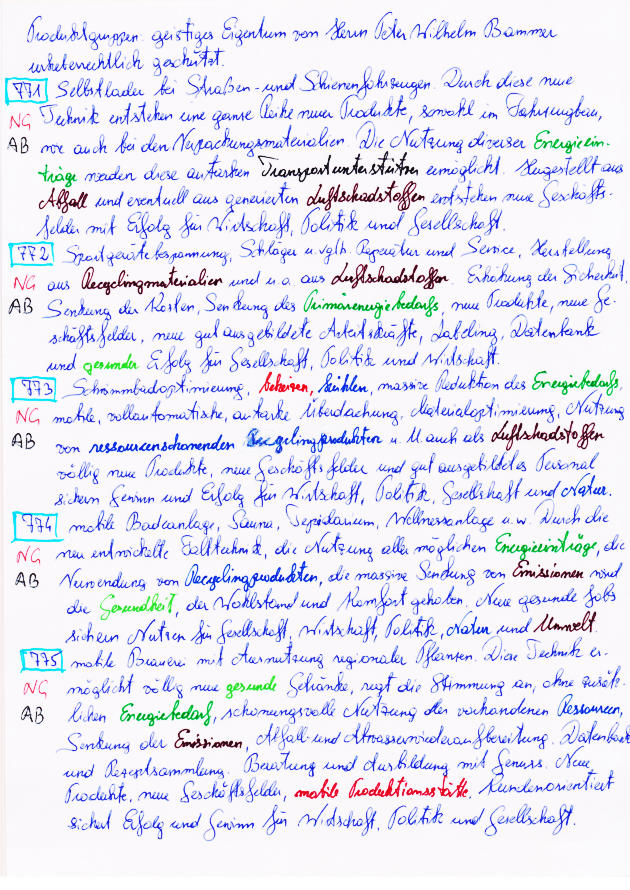 Produktgruppen: geistiges Eigentum von Herrn Peter Wilhelm Bammer
urheberrechtlich geschützt.
771 Selbstlader bei Straßen- und Schienenfahrzeugen. Durch diese neue
NG Technik entstehen eine ganze Reihe neuer Produkte, sowohl im Fahrzeugbau,
AB wie auch bei den Verpackungsmaterialien. Die Nutzung diverser Energieein-
träge werden diese autarken Transportunterstützer ermöglicht. Hergestellt aus
Abfall und eventuell aus generierten Luftschadstoffen entstehen neue Geschäfts-
felder mit Erfolg für Wirtschaft, Politik und Gesellschaft.
772 Sportgerätebespannung, Schläger u. vglb. Reparatur und Service, Herstellung
NG aus Recyclingmaterialien und u.a. aus Luftschadstoffen. Erhöhung der Sicherheit,
AB Senkung der Kosten, Senkung des Primärenergiebedarfs, neue Produkte, neue Ge-
schäftsfelder, neue gut ausgebildete Arbeitskräfte, Labeling, Datenbank
und gesunder Erfolg für Gesellschaft, Politik und Wirtschaft.
773 Schwimmbadoptimierung, beheizen, kühlen, massive Reduktion des Energiebedarfs,
NG mobile, vollautomatische, autarke Überdachung, Materialoptimierung, Nutzung
AB von ressourcenschonenden Recyclingprodukten u. U. auch als Luftschadstoffen
völlig neue Produkte, neue Geschäftsfelder und gut ausgebildetes Personal
sichern Gewinn und Erfolg für Wirtschaft, Politik, Gesellschaft und Natur.
774 mobile Badeanlage, Sauna, Tepidarium, Wellnessanlage u.w. Durch die
NG neu entwickelte Falttechnik, die Nutzung aller möglichen Energieeinträge, die
AB Verwendung von Recyclingprodukten, die massive Senkung von Emissionen wird
die Gesundheit, der Wohlstand und Komfort gehoben. Neue gesunde Jobs
sichern Nutzen für Gesellschaft, Wirtschaft, Politik, Natur und Umwelt.
775 mobile Brauerei mit Ausnutzung regionaler Pflanzen. Diese Technik er-
NG möglicht völlig neue gesunde Getränke, regt die Stimmung an, ohne zusätz-
AB lichen Energiebedarf, schonungsvolle Nutzung der vorhandenen Ressourcen,
Senkung der Emissionen, Abfall- und Abwasserwiederaufbereitung. Datenbank
und Rezeptsammlung. Beratung und Ausbildung mit Genuss. Neue
Produkte, neue Geschäftsfelder, mobile Produktionsstätte. Kundenorientiert
sichert Erfolg und Gewinn für Wirtschaft, Politik und Gesellschaft.